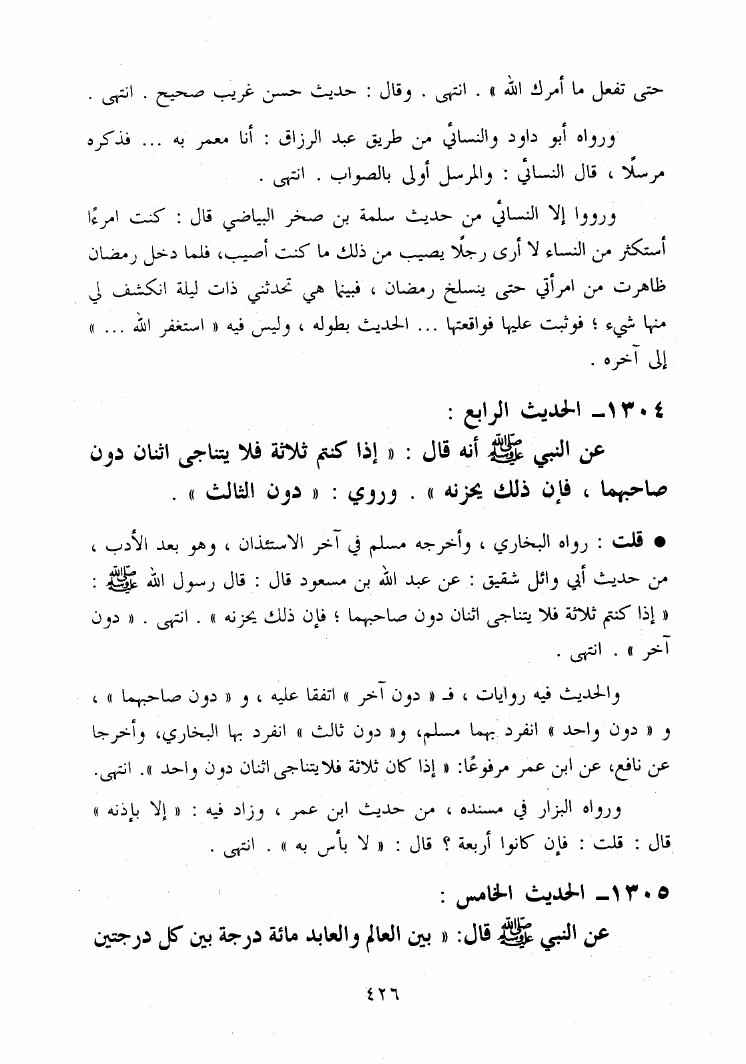 حتى تفعل ما أمرك الله » . انتهى . وقال : حديث حسن غريب صحيح . انتهى .
ورواه أبو داود والنسائي من طريق عبد الرزاق : أنا معمر به ... فذكره
مرسلًا ، قال النسائي : والمرسل أولى بالصواب . انتهى .
ورووا إلا النسائي من حديث سلمة بن صخر البياضي قال : كنت امرءًا
أستكثر من النساء لا أرى رجلًا يصيب من ذلك ما كنت أصيب، فلما دخل رمضان
ظاهرت من امرأتي حتى ينسلخ رمضان ، فبينما هي تحدثني ذات ليلة انكشف لي
منها شيء ؛ فوثبت عليها فواقعتها ... الحديث بطوله ، وليس فيه « استغفر الله ... »
إلى آخره .
١٣٠٤– الحديث الرابع :
عن النبي ﷺ أنه قال : « إذا كنتم ثلاثة فلا يتناجى اثنان دون
صاحبهما ، فإن ذلك يحزنه » . وروي : « دون الثالث » .
● قلت : رواه البخاري ، وأخرجه مسلم في آخر الاستئذان ، وهو بعد الأدب ،
من حديث أبي وائل شقيق : عن عبد الله بن مسعود قال : قال رسول الله ﷺ :
« إذا كنتم ثلاثة فلا يتناجى اثنان دون صاحبهما ؛ فإن ذلك يحزنه » . انتهى . « دون
آخر » . انتهى .
والحديث فيه روايات ، فـ « دون آخر » اتفقا عليه ، و « دون صاحبهما » ،
و « دون واحد » انفرد بهما مسلم، و« دون ثالث » انفرد بها البخاري، وأخرجا
عن نافع، عن ابن عمر مرفوعًا: « إذا كان ثلاثة فلا يتناجى اثنان دون واحد ». انتهى.
ورواه البزار في مسنده ، من حديث ابن عمر ، وزاد فيه : « إلا بإذنه »
قال : قلت : فإن كانوا أربعة ؟ قال : « لا بأس به » . انتهى .
١٣٠٥– الحديث الخامس :
عن النبي ﷺ قال: « بين العالم والعابد مائة درجة بين كل درجتين
٤٢٦